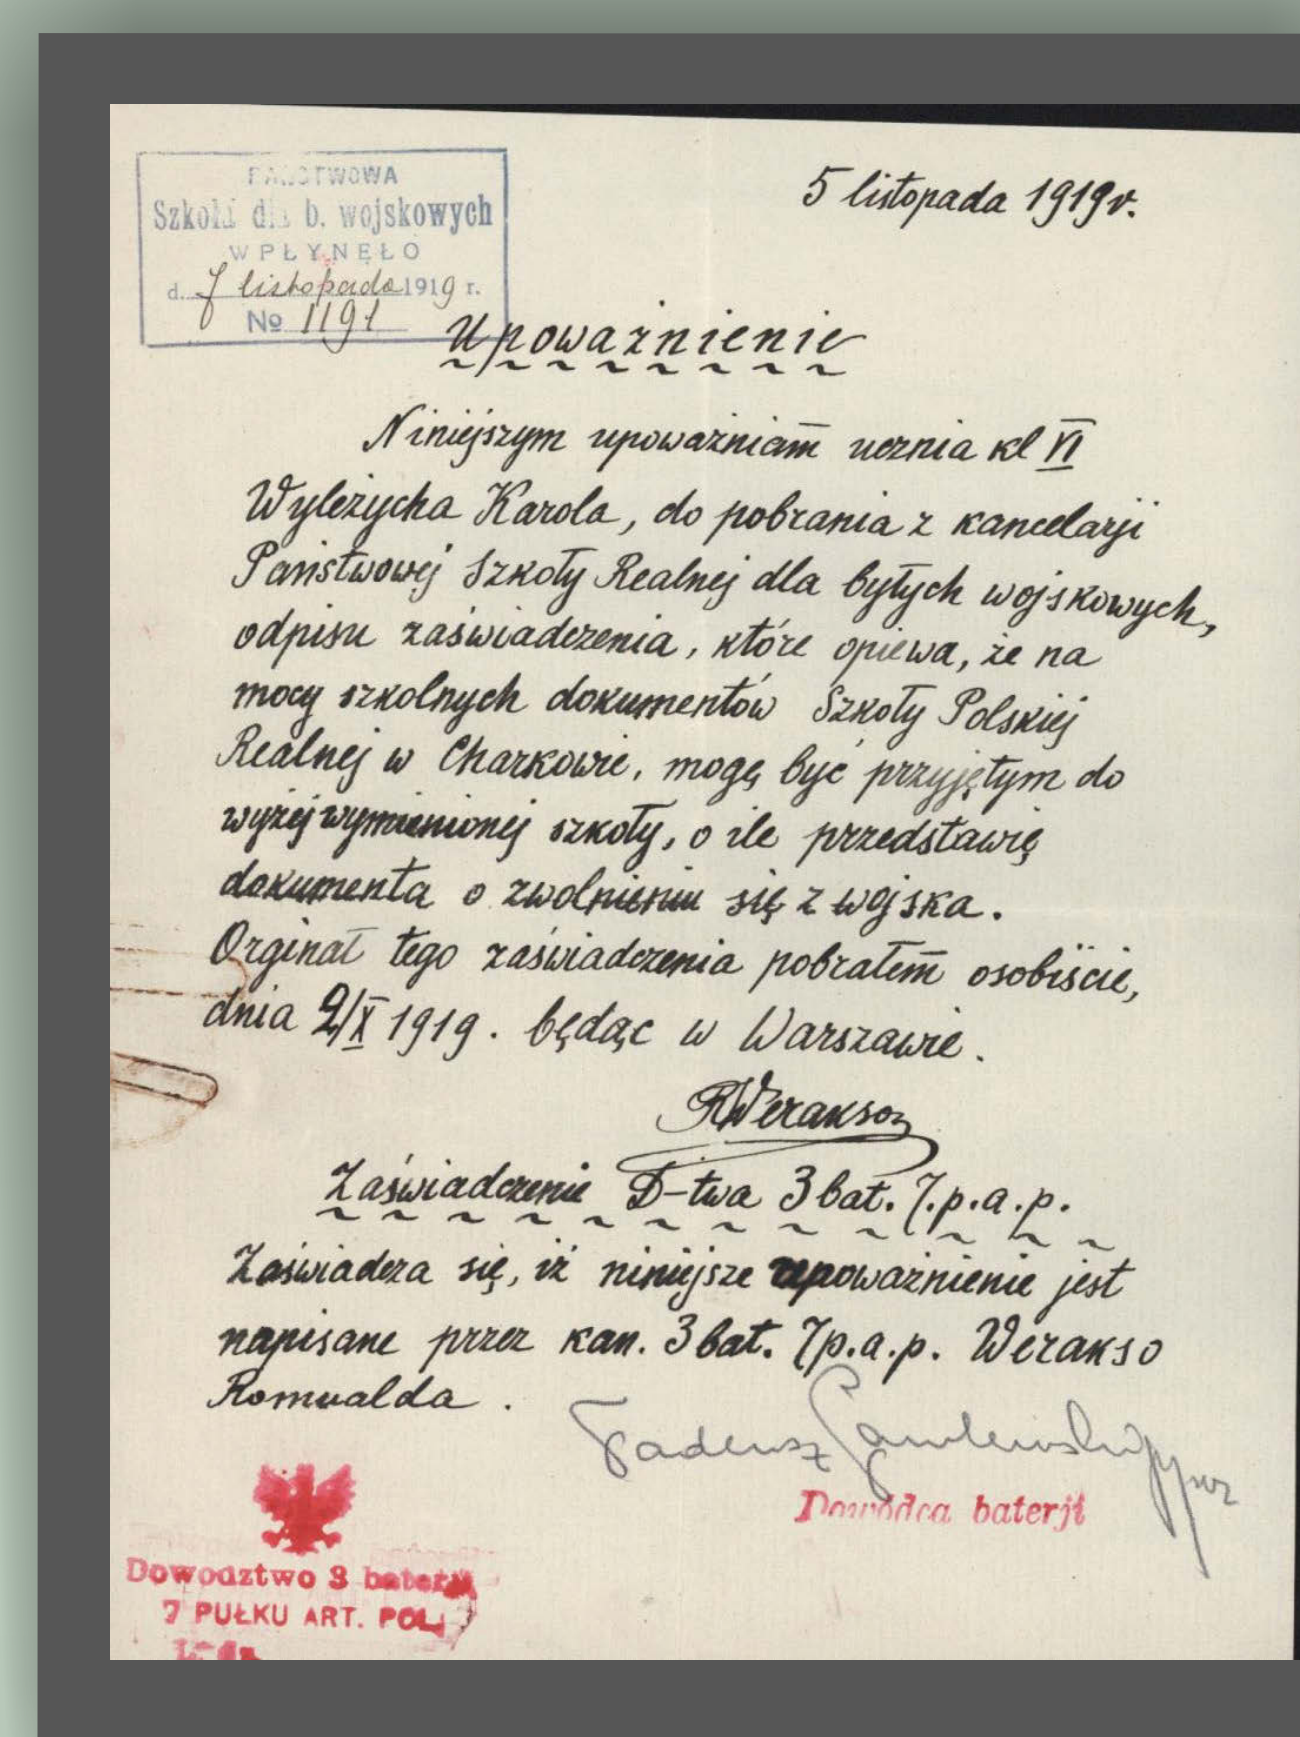 PAŃSTWOWA
Szkoła dla b. wojskowych
WPŁYNĘŁO
d. 7 listopada 1919 r.
No 1191
5 listopada 1919 r.
Upoważnienie
Niniejszym upoważniam̅ ucznia kl VI
Wyleżycha Karola, do pobrania z kancelarji
Państwowej Szkoły Realnej dla byłych wojskowych,
odpisu zaświadczenia, które opiewa, że na
mocy szkolnych dokumentów Szkoły Polskiej
Realnej w Charkowie, mogę być przyjętym do
wyżej wymienionej szkoły, o ile przedstawię
dokumenta o zwolnieniu się z wojska.
Orginał tego zaświadczenia pobrałem̅ osobiście,
dnia 2/X 1919. będąc w Warszawie.
RWerakso
Zaświadczenie D-twa 3 bat. 7.p.a.p.
Zaświadcza się, iż niniejsze upoważnienie jest
napisane przez kan. 3 bat. 7p.a.p. Werakso
Romualda.
Tadeusz
Dowódca baterji
Dowództwo 3 baterji
7 PUŁKU ART. POL.